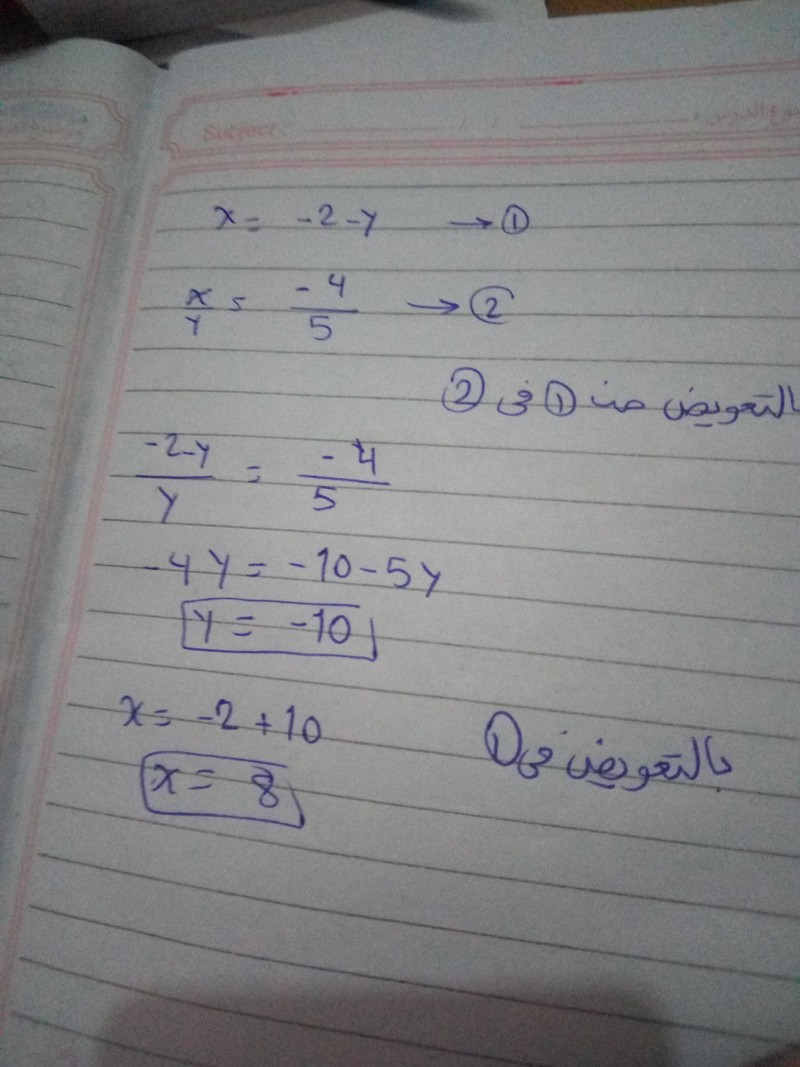 Subject:
x = -2-y → ①
x/y = -4/5 → ②
بالتعويض من ① فى ②
-2-y/y = -4/5
-4y = -10-5y
y = -10
x = -2+10
بالتعويض فى ①
x = 8